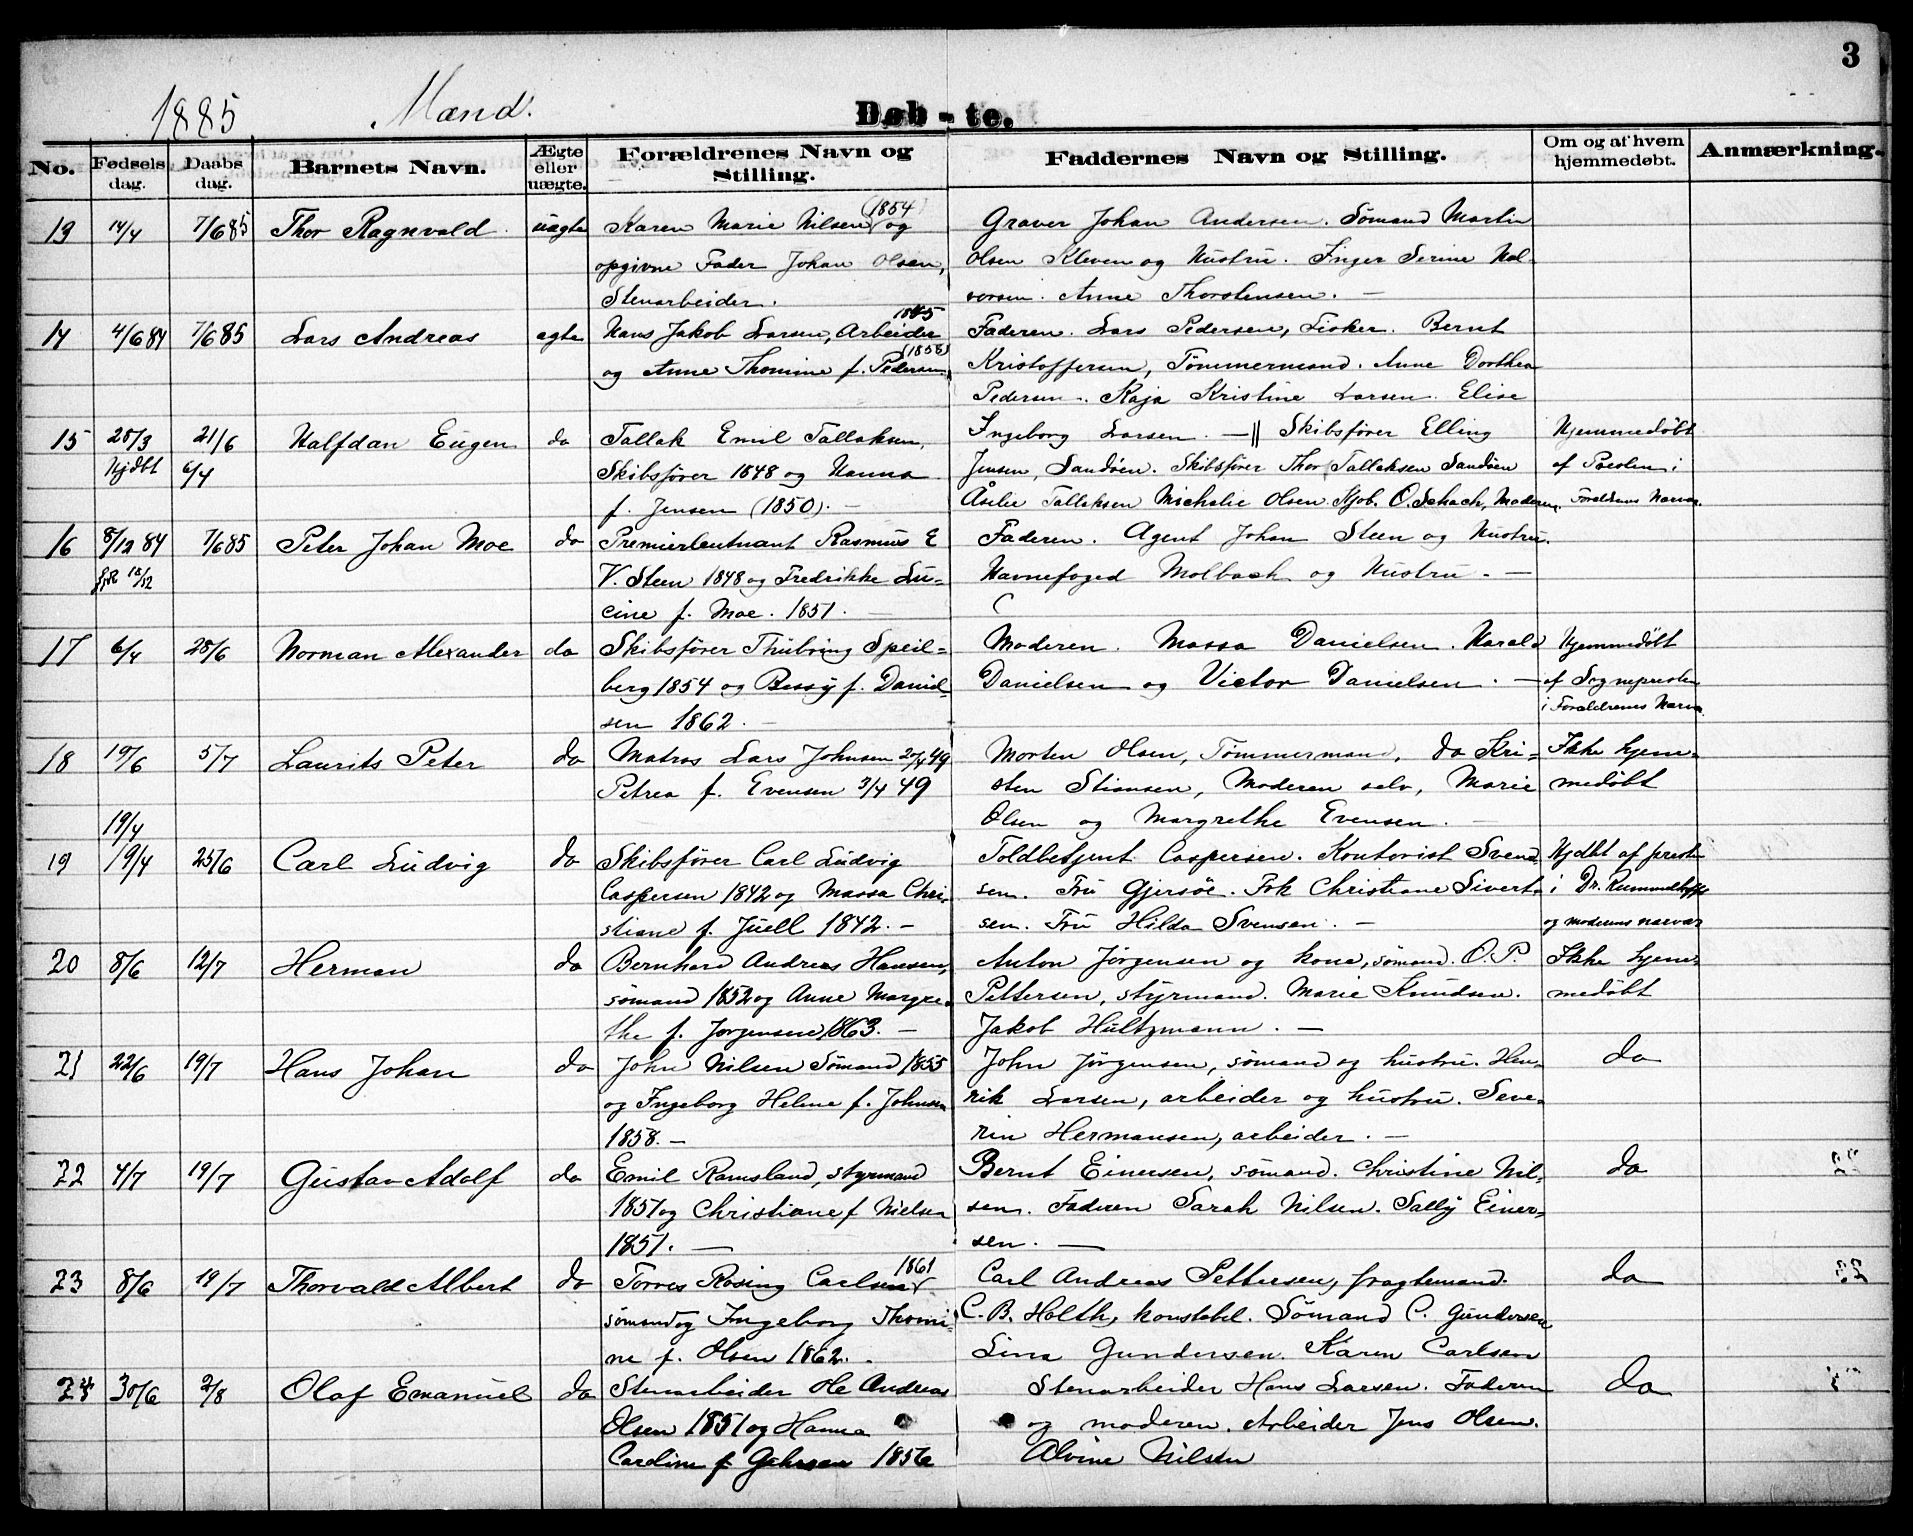 3
1885 Mænd.
Døb-te.
No. Fødsels dag. Daabs dag. Barnets Navn. Ægte eller uægte. Forældrenes Navn og Stilling. Faddernes Navn og Stilling. Om og af hvem hjemmedøbt. Anmærkning.
13 14/4 7/6 85 Thor Ragnvald uægte Karen Marie Nilsen (1854) og Graver Johan Andersen. Sömand Martin
opgivne Fader Johan Olsen, Olsen Kleven og Hustru. Inger Serine Hal-
Stenarbeider. vorsen. Anne Thorstensen. —
14 4/6 84 7/6 85 Lars Andreas ægte Hans Jakob Larsen, Arbeider Faderen. Lars Pedersen, Fisker. Bernt
og Anne Thomine f. Pedersen (1858) Kristoffersen, Tømmermand. Anne Dorthea
Pedersen. Kaja Kristine Larsen. Elise
15 25/3 21/6 Halfdan Eugen do Tallak Emil Tallaksen, Ingeborg Larsen. —|| Skibsfører Elling Hjemmedøbt
Hjdbt 6/4 Skibsfører 1848 og Hanna Jensen, Sandöen. Skibsfører Thor Tallaksen Sandöen af Presten i
f. Jensen (1850). — Åselie Tallaksen Michalie Olsen. Kjøb. O. Schach, Moderen. Forældrenes Nærvær.
16 8/12 84 7/6 85 Peter Johan Moe do Premierleutnant Rasmus E Faderen. Agent Johan Steen og Hustru.
18/12 V. Steen 1848 og Fredrikke Lu- Havnefoged Molbach og Hustru. —
cine f. Moe. 1851. —
17 6/4 28/6 Norman Alexander do Skibsfører Thubring Speil- Moderen. Massa Danielsen. Harald Hjemmedöbt
berg 1854 og Bessy f. Daniel- Danielsen og Victor Danielsen. — af Sognepresten
sen 1862. — i Forældrenes Nærvær.
18 19/6 5/7 Laurits Peter do Matros Lars Johnsen 20/4 49 Morten Olsen, Tømmermand, do Kri- Ikke hjem-
Petrea f. Evensen 3/4 49 sten Stiansen, Moderen selv, Marie medøbt
19/4 Olsen og Margrethe Evensen. —
19 19/4 25/6 Carl Ludvig do Skibsfører Carl Ludvig Toldbetjent Caspersen. Kontorist Svend- Hjdbt af presten
Caspersen 1842 og Massa Chri- sen. Fru Gjersöe. Frk Christiane Sivert- i Dr. Rummelhoffs
stiane f. Juell 1842. — sen. Fru Hilda Svensen. — og moderens nærvær
20 8/6 12/7 Herman do Bernhard Andreas Hansen, Anton Jörgensen og kone, sömand. O. P. Ikke hjem-
sömand 1852 og Anne Margre- Pettersen, styrmand. Marie Knudsen. medöbt
the f. Jorgensen 1863. — Jakob Hultzmann. —
21 22/6 19/7 Hans Johan do John Nilsen Sömand 1855 John Jörgensen, sömand og hustru. Hen- do
og Ingeborg Helene f. Johnsen rik Larsen, arbeider og hustru. Seve-
1858. — rin Hermansen, arbeider. —
22 4/7 19/7 Gustav Adolf do Emil Ramsland, styrmand Bernt Einersen, sömand. Christine Nil- do
1851 og Christiane f. Nielsen sen. Faderen Sarah Nilsen. Sally Einer-
1851. — sen. —
23 8/6 19/7 Thorvald Albert do Torres Rosing Carlsen 1861 Carl Andreas Pettersen, fragtemand. do
sömand og Ingeborg Thomi- C. B. Holth, konstabel. Sömand C. Gundersen
ne f. Olsen 1862. Lina Gundersen. Karen Carlsen
24 30/6 2/8 Olaf Emanuel do Stenarbeider Ole Andreas Stenarbeider Hans Larsen. Faderen do
Olsen 1851 og Hanna og moderen. Arbeider Jens Olsen.
Caroline f 1856 Alvine Nilsen